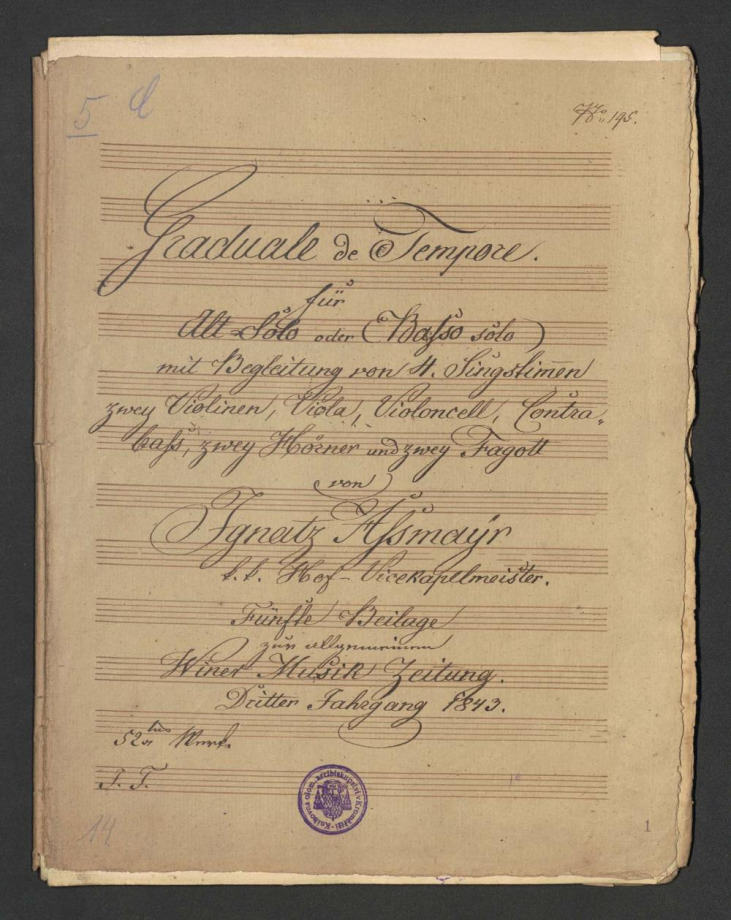 5 d
No. 195.
Graduale de Tempore.
für
Alt-Solo oder Basso solo
mit Begleitung von 4. Singstim̅en
zwey Violinen, Viola, Violoncell, Contra=
baſs, zwey Hörner und zwey Fagott
von
Ignatz Aſsmaÿr
k. k. Hof-Vicekapellmeister.
Fünfte Beilage
zur allgemeinen
Winer Musik Zeitung.
Dritter Jahrgang 1843.
52tes Werk.
J. T.
14
1
Knihovna olom. arcibiskupství v Kroměříži